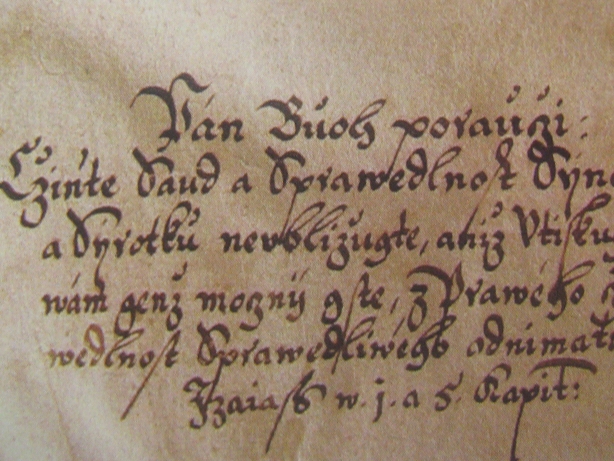 Pán Bůoh poraůčzi:
Cžińte Saud a Sprawedlnost
a Syrotků neobližugte, aniž Vtisku
wám genž mozný gste, z Prawého
wedlnost Sprawedliwého odnimat
Izaiass w. j. a 5. Kapit: